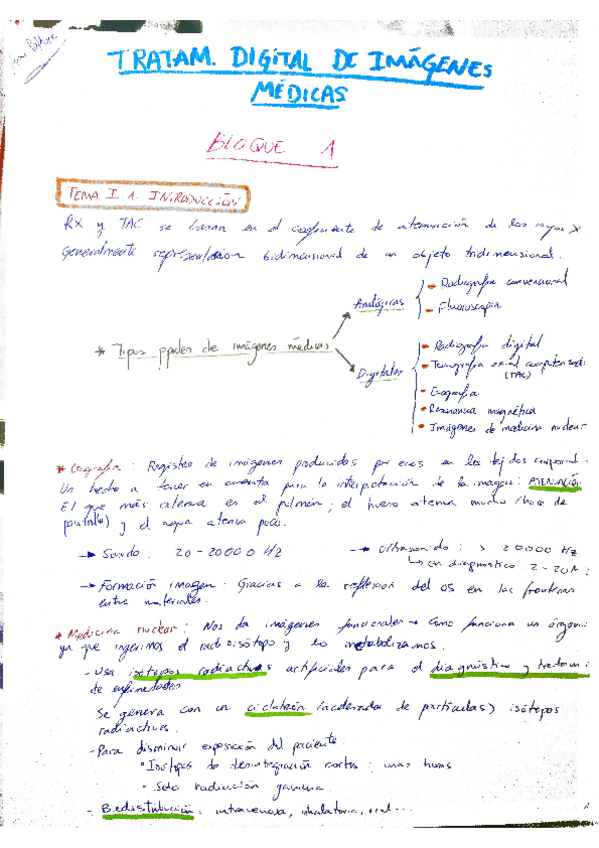 TRATAM. DIGITAL DE IMÁGENES
MÉDICAS
BLOQUE 1
TEMA I 1. INTRODUCCIÓN
RX y TAC se basan en el coeficiente de atenuación de los rayos X
Generalmente representación bidimensional de un objeto tridimensional.
* Tipos ppales de imágenes médicas
Analógicas
- Radiografía convencional
- Fluoroscopia
Digitales
- Radiografía digital
- Tomografía axial computeriz
(TAC)
- Ecografía
- Resonancia magnética
- Imágenes de medicina nuclear
* Ecografía: Registro de imágenes producidas por ecos en los tejidos corporal
Un hecho a tener en cuenta para la interpretación de la imagen: ATENUACIÓN
El que más atenua es el pulmón; el hueso atenua mucho (hace de
pantalla) y el agua atenua poco.
→ Sonido: 20-20000 Hz
→ Ultrasonido: > 20000 Hz
↳ en diagnostico 2-20M
→ Formación imagen: Gracias a la reflexión del US en las fronteras
entre materiales.
* Medicina nuclear: Nos da imágenes funcionales → Como funciona un órgano
ya que ingerimos el radioisótopo y lo metabolizamos.
- Usa isótopos radiactivos artificiales para el diagnóstico y tratam
de enfermedades
Se genera con un ciclotrón (acelerador de partículas) isótopos
radiactivos.
- Para disminuir exposición del paciente
• Isotopos de desintegración cortos: unas horas
• Solo radiación gamma.
- Biodistribución: intravenosa, inhalatoria, oral...